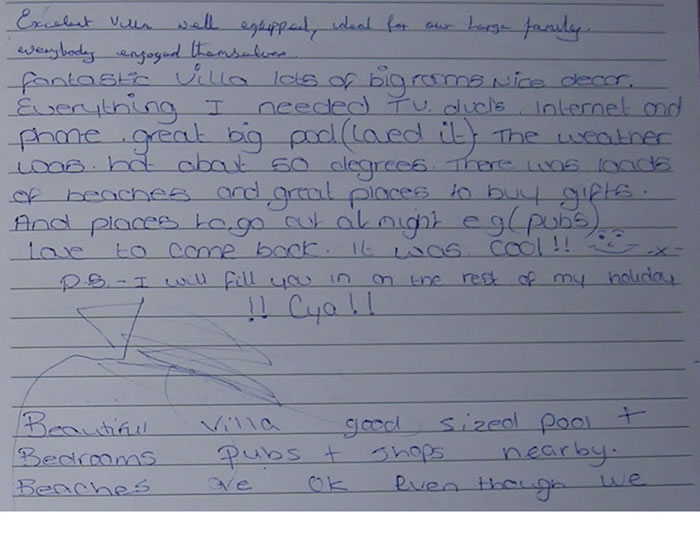 Excelent Villa well equipped, ideal for our large family.
everybody enjoyed themselves.
fantastic Villa lots of big rooms Nice decor.
Everything I needed T.V. dvd's. Internet and
phone. great big pool (loved it) The weather
was. hot about 50 degrees. There was loads
of beaches and great places to buy gifts.
And places to go out at night e g (pubs)
Love to come back. It was cool!! -x-
P.S. - I will fill you in on the rest of my holiday
!! Cya!!
Beautiful Villa good sized pool +
Bedrooms pubs + shops nearby.
Beaches are ok Even though we